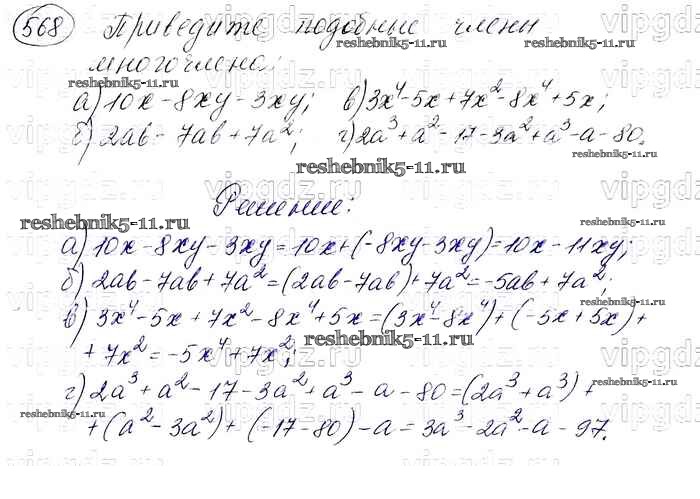 568 Приведите подобные члены
многочлена:
а) 10x - 8xy - 3xy; в) 3x⁴ - 5x + 7x² - 8x⁴ + 5x;
б) 2ab - 7ab + 7a²; г) 2a³ + a² - 17 - 3a² + a³ - a - 80.
Решение:
а) 10x - 8xy - 3xy = 10x + (-8xy - 3xy) = 10x - 11xy;
б) 2ab - 7ab + 7a² = (2ab - 7ab) + 7a² = -5ab + 7a²;
в) 3x⁴ - 5x + 7x² - 8x⁴ + 5x = (3x⁴ - 8x⁴) + (-5x + 5x) +
+ 7x² = -5x⁴ + 7x²;
г) 2a³ + a² - 17 - 3a² + a³ - a - 80 = (2a³ + a³) +
+ (a² - 3a²) + (-17 - 80) - a = 3a³ - 2a² - a - 97.
reshebnik5-11.ru
vipgdz.ru